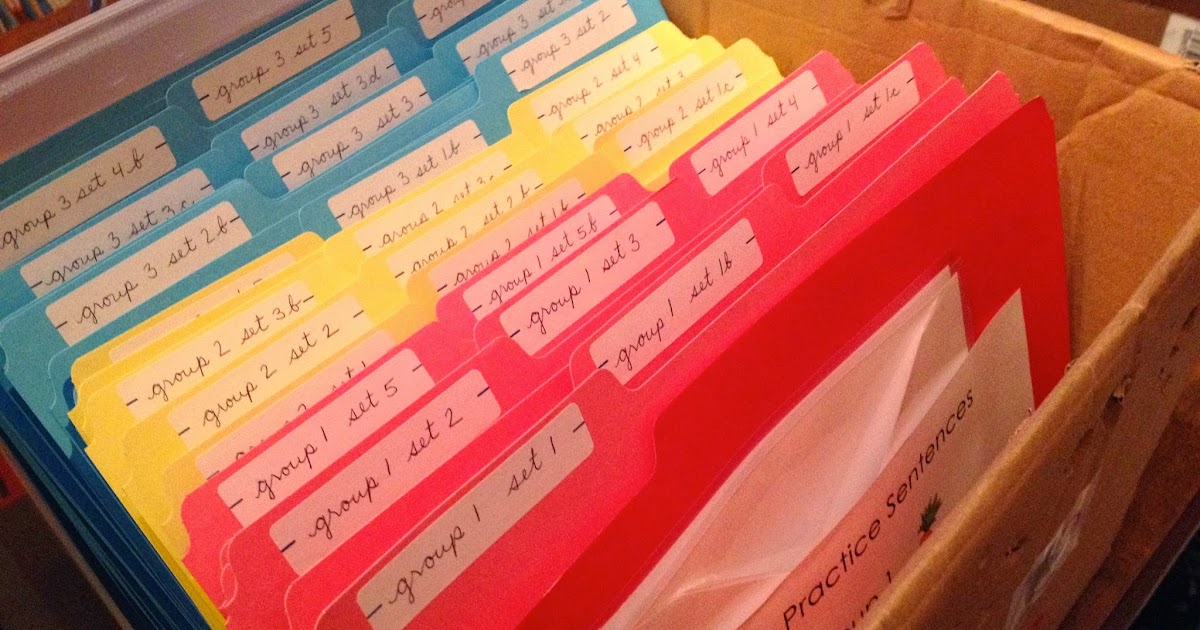 group 3 set 5
group 3 set 3d
group 3 set 3
group 3 set 2
group 3 set 1b
group 3 set 4b
group 3 set 3c
group 3 set 2b
group 2 set 4
group 2 set 3
group 2 set 1c
group 2 set
group 2 set 2b
group 2 set 1b
group 2 set 3b
group 2 set 2
group 1 set 4
group 1 set 1c
group 1 set 5b
group 1 set 3
group 1 set 1b
group 1 set 5
group 1 set 2
group 1 set 1
Practice Sentences